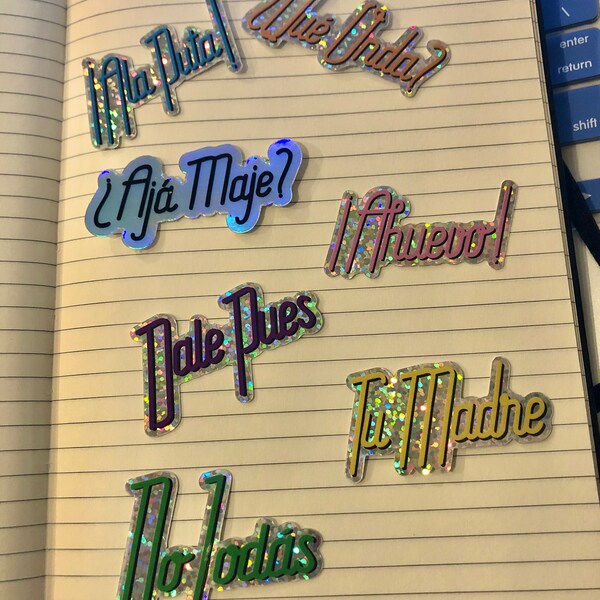 ¡Ala Puta!
¿Qué Onda?
¿Ajá Maje?
¡Ahuevo!
Dale Pues
Tu Madre
No Jodás
\
enter
return
shift